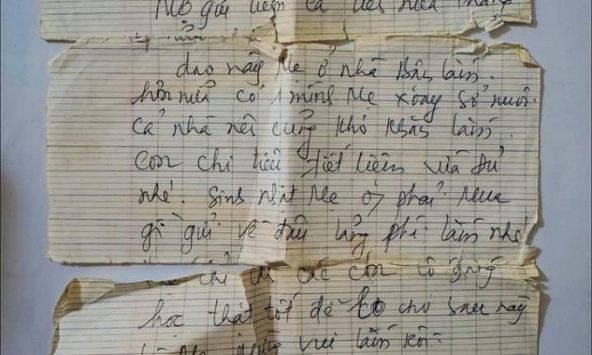 Mẹ gửi tiền cả tiền nữa tháng
dạo này Mẹ ở nhà Bận lắm.
hơn nữa có 1 mình Mẹ xoay sở nuôi
cả nhà nên cũng khó khăn lắm.
con chi tiêu tiết kiệm vừa đủ
nhé. Sinh nhật Mẹ ko phải mua
gì gửi về đâu lãng phí lắm nhé
chỉ các con cố gắng
học thật tốt để lo cho sau này
là Mẹ vui lắm rồi.